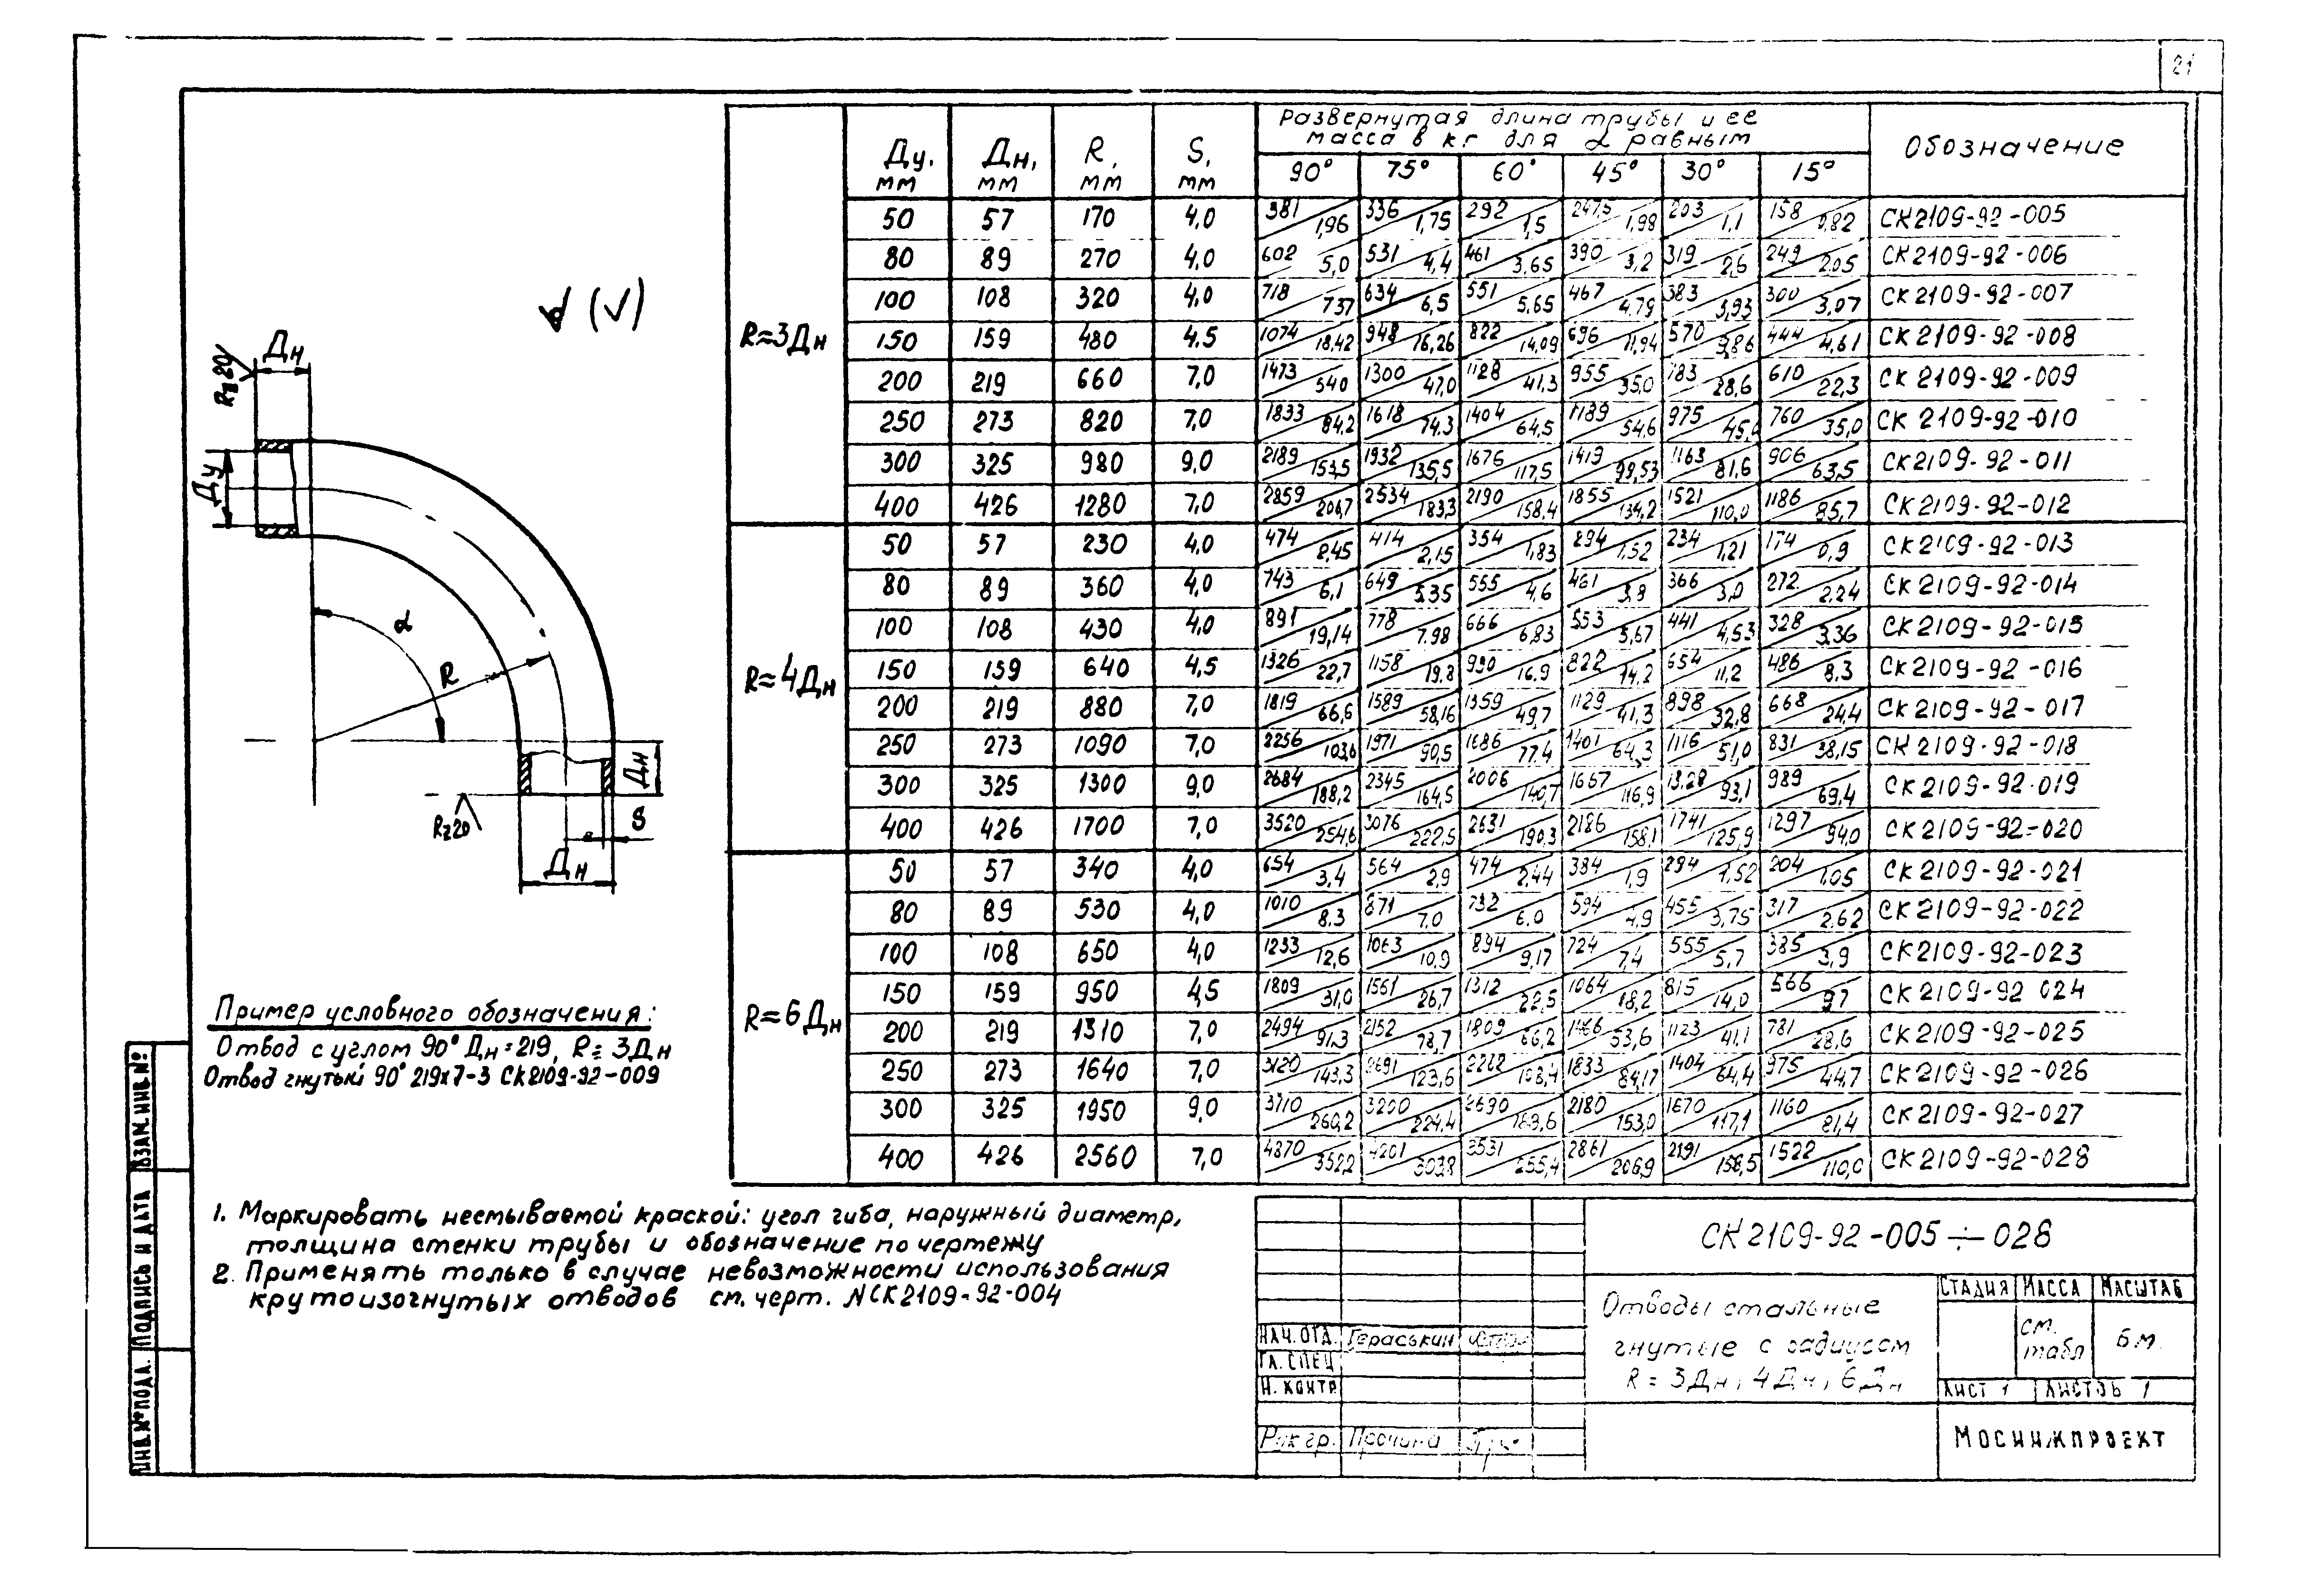 21
Дн
Rz20
Ду
α
R
Дн
Rz20
S
Дн
Пример условного обозначения:
Отвод с углом 90° Дн=219, R≈3Дн
Отвод гнутый 90° 219х7-3 СК2109-92-009
Ду, мм Дн, мм R, мм S, мм Развернутая длина трубы и ее масса в кг для α равным Обозначение
90° 75° 60° 45° 30° 15°
R≈3Дн
50 57 170 4,0 381/1,96 336/1,75 292/1,5 247,5/1,98 203/1,1 158/0,82 СК2109-92-005
80 89 270 4,0 602/5,0 531/4,4 461/3,65 390/3,2 319/2,6 249/2,05 СК2109-92-006
100 108 320 4,0 718/737 634/6,5 551/5,65 467/4,79 383/3,93 300/3,07 СК2109-92-007
150 159 480 4,5 1074/18,42 948/16,26 822/14,09 696/11,94 570/9,86 444/4,61 СК2109-92-008
200 219 660 7,0 1473/540 1300/47,0 1128/41,3 955/35,0 783/28,6 610/22,3 СК 2109-92-009
250 273 820 7,0 1833/84,2 1618/74,3 1404/64,5 1189/54,6 975/45,0 760/35,0 СК 2109-92-010
300 325 980 9,0 2189/153,5 1932/135,5 1676/117,5 1419/99,53 1163/81,6 906/63,5 СК2109-92-011
400 426 1280 7,0 2859/206,7 2534/183,3 2190/158,4 1855/134,2 1521/110,0 1186/85,7 СК2109-92-012
R≈4Дн
50 57 230 4,0 474/2,45 414/2,15 354/1,83 294/1,52 234/1,21 174/0,9 СК2109-92-013
80 89 360 4,0 743/6,1 649/5,35 555/4,6 461/3,8 366/3,0 272/2,24 СК2109-92-014
100 108 430 4,0 891/19,14 778/7,98 666/6,83 553/5,67 441/4,53 328/3,36 СК2109-92-015
150 159 640 4,5 1326/22,7 1158/19,8 990/16,9 822/14,2 654/11,2 486/8,3 СК2109-92-016
200 219 880 7,0 1819/66,6 1589/58,16 1359/49,7 1129/41,3 898/32,8 668/24,4 СК2109-92-017
250 273 1090 7,0 2256/103,6 1971/90,5 1686/77,4 1401/64,3 1116/51,0 831/38,15 СК2109-92-018
300 325 1300 9,0 2684/188,2 2345/164,5 2006/140,7 1667/116,9 1328/93,1 989/69,4 СК2109-92-019
400 426 1700 7,0 3520/254,6 3076/222,5 2631/190,3 2186/158,1 1741/125,9 1297/94,0 СК2109-92-020
R≈6Дн
50 57 340 4,0 654/3,4 564/2,9 474/2,44 384/1,9 294/1,52 204/1,05 СК2109-92-021
80 89 530 4,0 1010/8,3 871/7,0 732/6,0 594/4,9 455/3,75 317/2,62 СК2109-92-022
100 108 650 4,0 1233/12,6 1063/10,9 894/9,17 724/7,4 555/5,7 385/3,9 СК2109-92-023
150 159 950 4,5 1809/31,0 1561/26,7 1312/22,5 1064/18,2 815/14,0 566/97 СК2109-92 024
200 219 1310 7,0 2494/91,3 2152/78,7 1809/66,2 1466/53,6 1123/41,1 781/28,6 СК2109-92-025
250 273 1640 7,0 3120/143,3 2691/123,6 2262/108,4 1833/84,17 1404/64,4 975/44,7 СК2109-92-026
300 325 1950 9,0 3710/260,2 3200/224,4 2690/188,6 2180/153,0 1670/117,1 1160/81,4 СК2109-92-027
400 426 2560 7,0 4870/352,2 4201/303,8 3531/255,4 2861/206,9 2191/158,5 1522/110,0 СК2109-92-028
1. Маркировать несмываемой краской: угол гиба, наружный диаметр,
толщина стенки трубы и обозначение по чертежу
2. Применять только в случае невозможности использования
крутоизогнутых отводов см. черт. NСК2109-92-004
СК2109-92-005÷028
Отводы стальные
гнутые с радиусом
R = 3Дн, 4Дн, 6Дн
Стадия Масса Масштаб
см. табл Б.м.
Лист 1 Листов 1
Мосинжпроект
Нач. отд. Гераськин
Гл. спец
Н. контр
Рук гр. Прочина
Инв. №подл. Подпись и дата Взам. инв. №